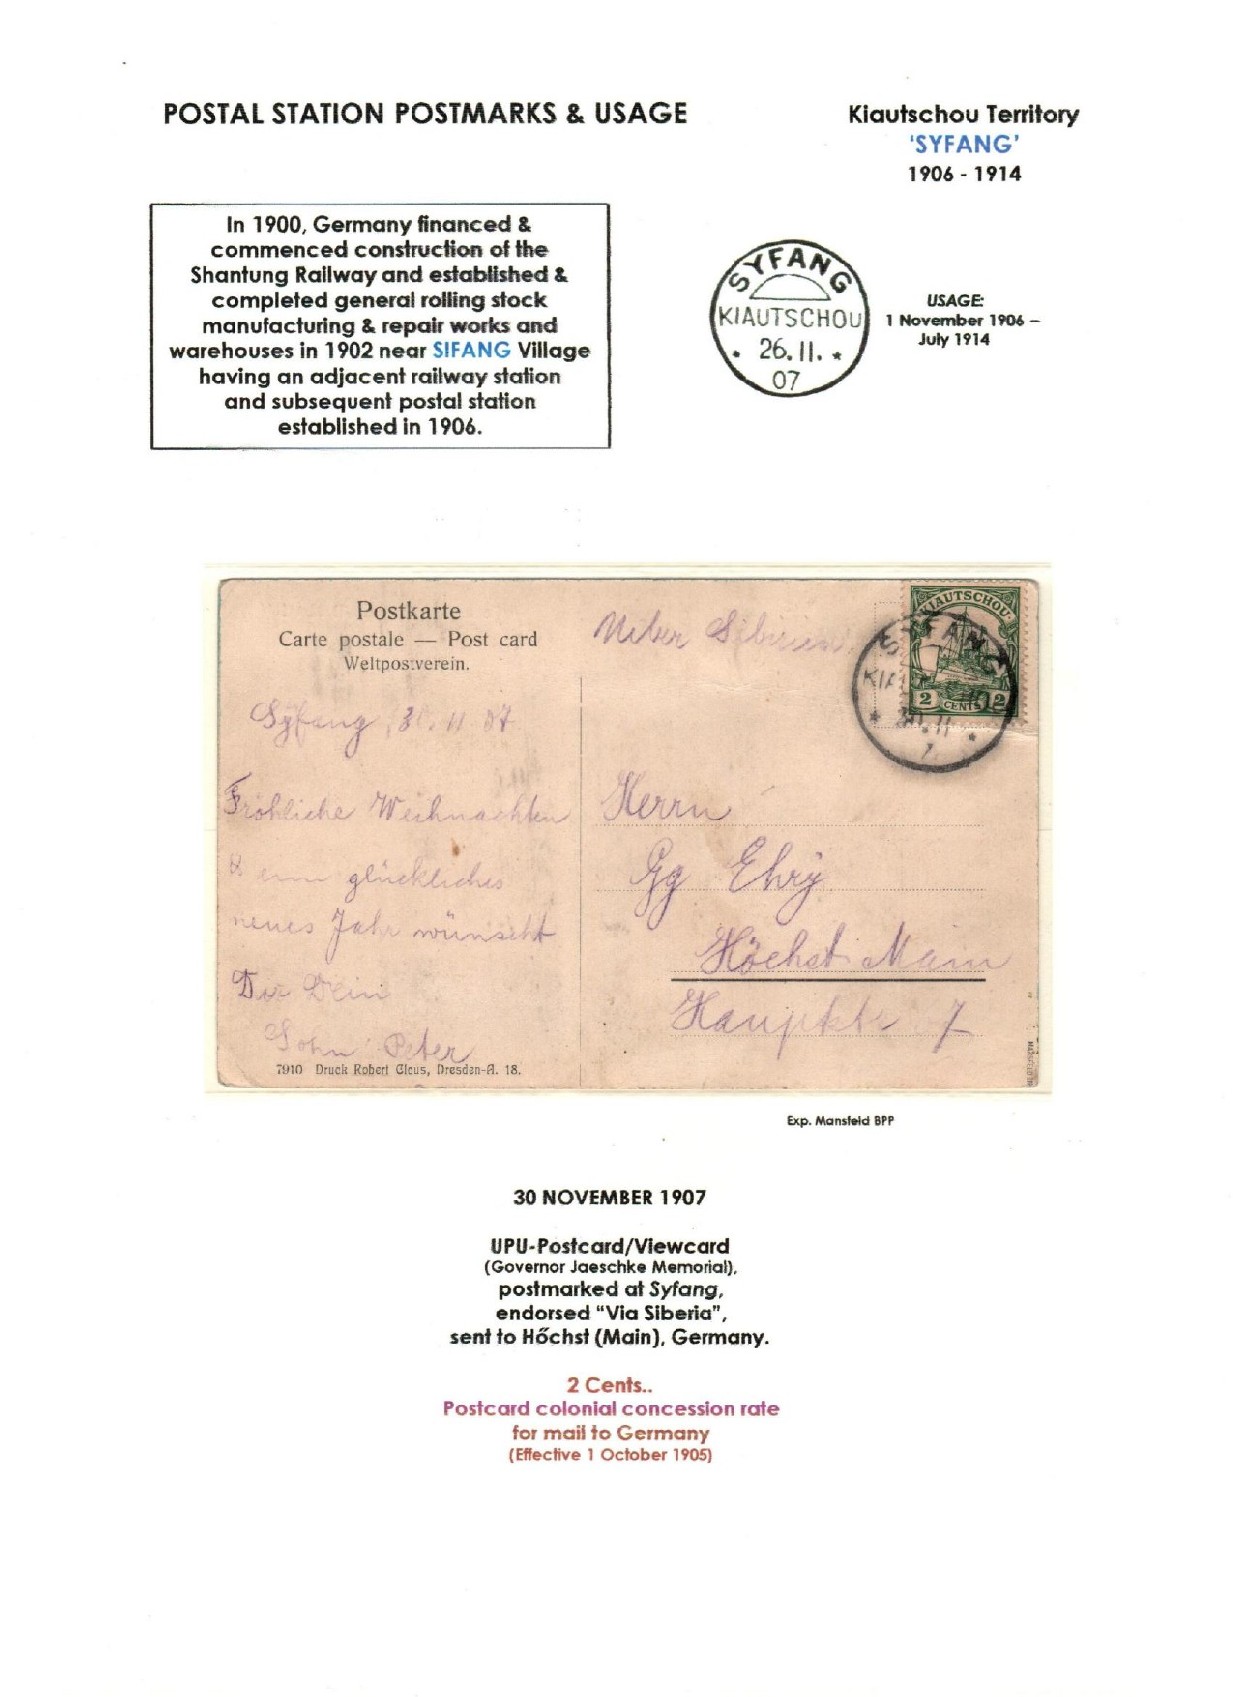 POSTAL STATION POSTMARKS & USAGE
Kiautschou Territory
'SYFANG'
1906 - 1914
In 1900, Germany financed &
commenced construction of the
Shantung Railway and established &
completed general rolling stock
manufacturing & repair works and
warehouses in 1902 near SIFANG Village
having an adjacent railway station
and subsequent postal station
established in 1906.
SYFANG
KIAUTSCHOU
26.11.
07
USAGE:
1 November 1906 –
July 1914
Postkarte
Carte postale — Post card
Weltpostverein.
Ueber Sibirien
KIAUTSCHOU
2 CENTS 2
SYFANG
Syfang, 30. 11 07
Fröhliche Weihnachten
& ein glückliches
neues Jahr wünscht
Dir Dein
Sohn Peter
Herrn
Gg Ehry
Höchst Main
Hauptstr 7
7910 Druck Robert Gleus, Dresden-A. 18.
Exp. Mansfeld BPP
30 NOVEMBER 1907
UPU-Postcard/Viewcard
(Governor Jaeschke Memorial),
postmarked at Syfang,
endorsed “Via Siberia”,
sent to Hőchst (Main), Germany.
2 Cents..
Postcard colonial concession rate
for mail to Germany
(Effective 1 October 1905)